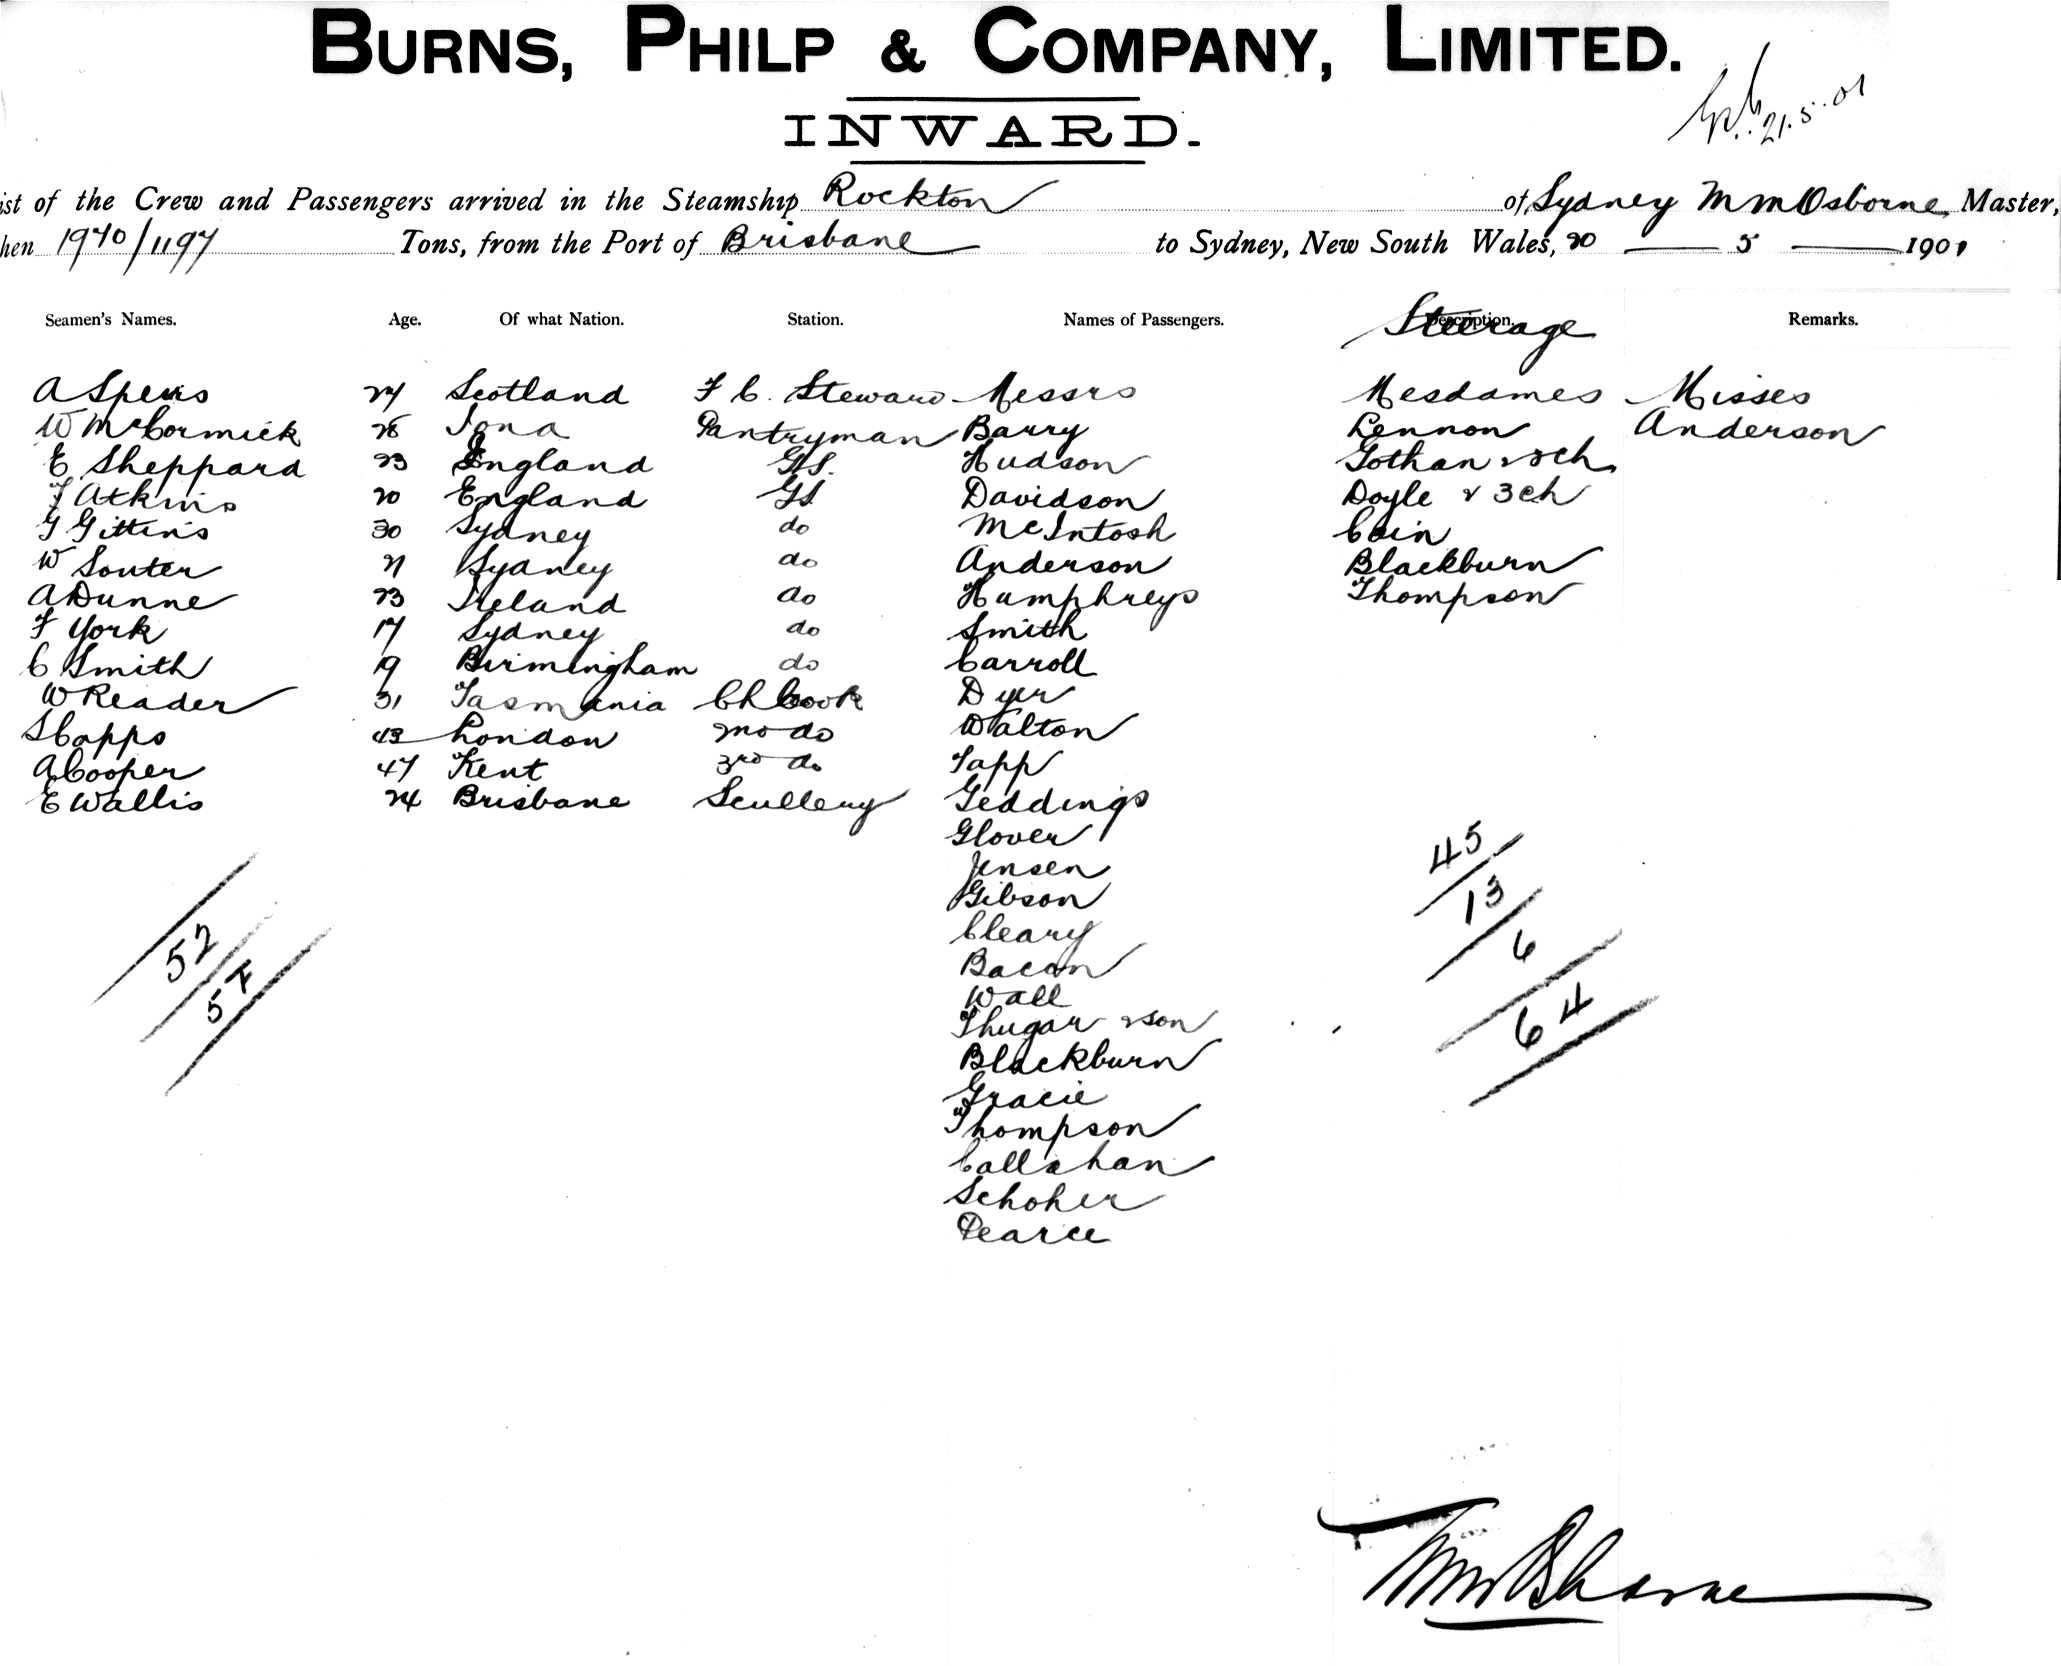 BURNS, PHILP & COMPANY, LIMITED.
21.5.01
INWARD.
ist of the Crew and Passengers arrived in the Steamship Rockton of Sydney M M Osborne Master,
hen 1970/1197 Tons, from the Port of Brisbane to Sydney, New South Wales, 20 — 5 — 1901
Seamen's Names. Age. Of what Nation. Station. Names of Passengers. Description. Steerage Remarks.
A Speirs 27 Scotland F C. Steward Messrs Mesdames Misses
W McCormick 28 Iona Pantryman Barry Lennon Anderson
E Sheppard 23 England G.S. Hudson Gothan & ch
F Atkins 20 England G.S. Davidson Doyle & 3 ch
G Gittins 30 Sydney do McIntosh Cain
W Souter 21 Sydney do Anderson Blackburn
A Dunne 23 Ireland do Humphreys Thompson
F York 17 Sydney do Smith
C Smith 19 Birmingham do Carroll
W Reader 31 Tasmania Ch Cook Dyer
S Capps 43 London 2nd do Walton
A Cooper 47 Kent 3rd do Tapp
E Wallis 24 Brisbane Scullery Geddings
Glover
Jensen
Gibson
Cleary
Bacon
Wall
Thugar & son
Blackburn
Gracie
Thompson
Callahan
Schoher
Pearce
52
57
45
13
6
64